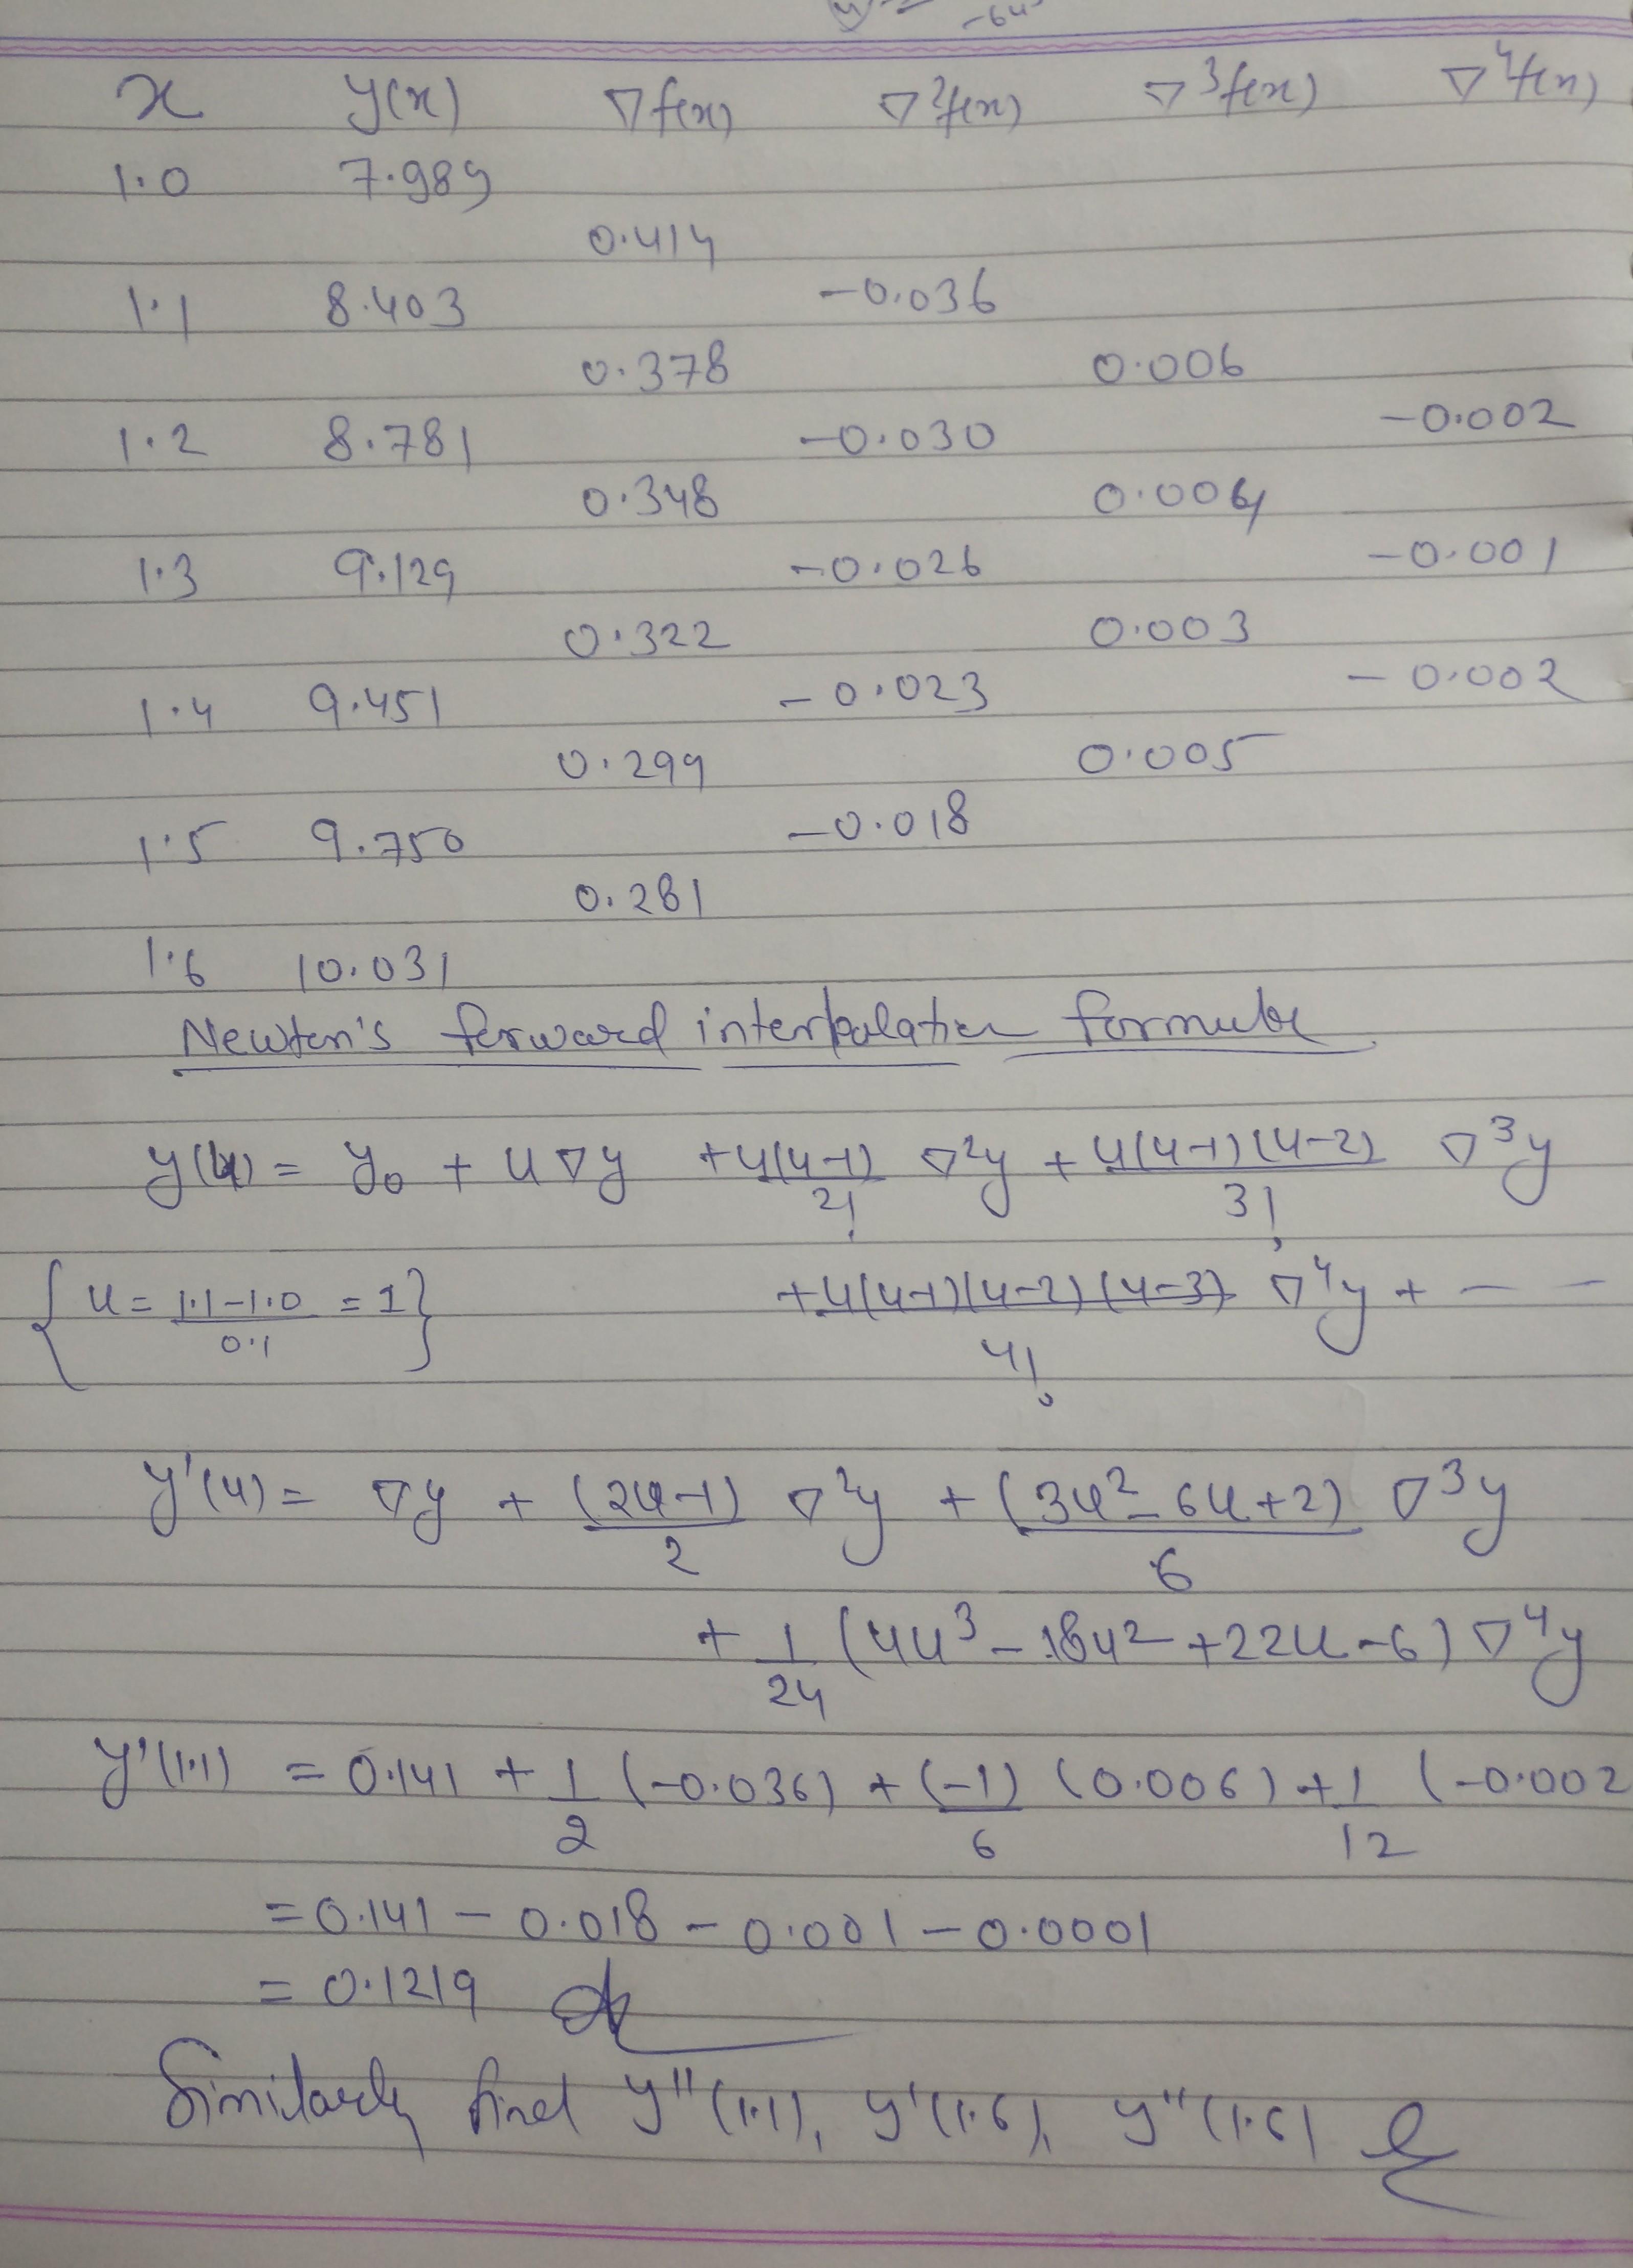 -64
x y(x) ∇f(x) ∇²f(x) ∇³f(x) ∇⁴f(x)
1.0 7.989
0.414
1.1 8.403 -0.036
0.378 0.006
1.2 8.781 -0.030 -0.002
0.348 0.004
1.3 9.129 -0.026 -0.001
0.322 0.003
1.4 9.451 -0.023 -0.002
0.299 0.005
1.5 9.750 -0.018
0.281
1.6 10.031
Newton's forward interpolation formula
y(u) = y₀ + u∇y + u(u-1)/2! ∇²y + u(u-1)(u-2)/3! ∇³y
{u = 1.1-1.0/0.1 = 1} + u(u-1)(u-2)(u-3)/4! ∇⁴y + - -
y'(u) = ∇y + (2u-1)/2 ∇²y + (3u²-6u+2)/6 ∇³y
+ 1/24 (4u³-18u²+22u-6) ∇⁴y
y'(1.1) = 0.141 + 1/2 (-0.036) + (-1)/6 (0.006) + 1/12 (-0.002
= 0.141 - 0.018 - 0.001 - 0.0001
= 0.1219
Similarly find y''(1.1), y'(1.6), y''(1.6)